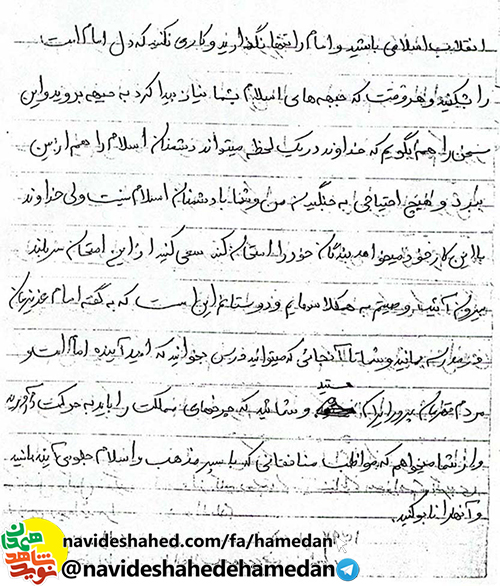 انقلاب اسلامی باشید و امام را تنها نگذارید و کاری نکنید که دل امام امت
را بشکنید و هر وقت که جبهه های اسلام بشما نیاز پیدا کرد به جبهه بروید و این
سخن را هم بگویم که خداوند در یک لحظه میتواند دشمنان اسلام را هم از بین
ببرد و هیچ احتیاجی به جنگیدن من و شما با دشمنان اسلام نیست ولی خداوند
با این کار خود میخواهد بندگان خود را امتحان کند سعی کنید از این امتحان سربلند
بیرون آیید و وصیتم به همکلاسهایم و دوستانم این است که به گفته امام عزیزمان
بمانید و شما تا آنجائی که میتوانید درس بخوانید که امید آینده امام امت و
مردم هستید و شمائید که چرخهای مملکت را باید به حرکت درآورید
و از شما میخواهم که مواظب منافقانی که با سپر مذهب و اسلام جلو می آیند باشید
و آنها را نابود کنید.
navideshahed.com/fa/hamedan
@navideshahedehamedan
نوید شاهد همدان